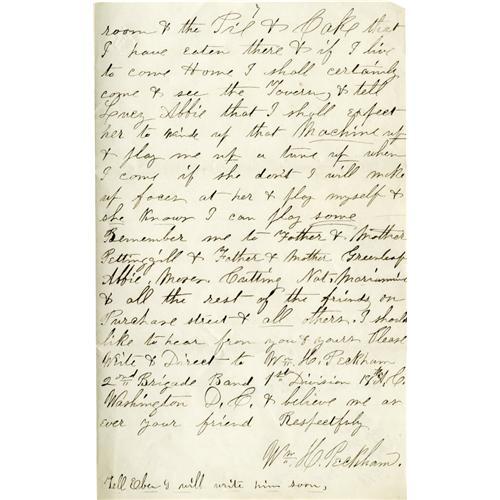 7
room & the Pie & Cake that
I have eaten there & if I live
to come Home I shall certainly
come & see the Tavern, & tell
Lucy Abbie that I shall expect
her to wind up that Machine up
& play me up a tune up when
I come if she don't I will make
up faces at her & play myself &
she knows I can play some
Remember me to Father & Mother
Pettinggill & Father & Mother Greenleaf
Abbie, Moses, Cutting Nat,
& all the rest of the friends on
Purchase street & all others. I should
like to hear from you & yours Please
Write & Direct to Wm. H. Peckham
2nd Brigade Band 1st Division
Washington D. C. & believe me as
ever your friend Respectfuly
Wm. H. Peckham.
Tell Eben I will write him soon,